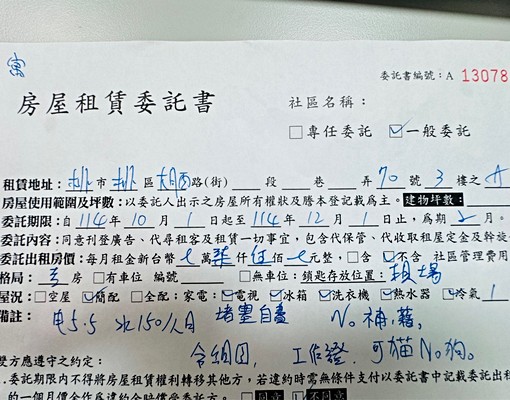 寓
委託書編號：A 13078
房屋租賃委託書
社區名稱：
□專任委託 ☑一般委託
租賃地址：桃市桃區 路(街) 段 巷 弄 70 號 3 樓之
房屋使用範圍及坪數：以委託人出示之房屋所有權狀及謄本登記載為主。建物坪數：
委託期限：自 114 年 10 月 1 日起至 114 年 12 月 1 日止，為期 2 月。
委託內容：同意刊登廣告、代尋租客及租賃一切事宜，包含代保管、代收取租屋定金及斡旋
委託出租房價：每月租金新台幣 萬 仟 佰 元整，□含 ☑不含 社區管理費用
格局： 房 □有車位 編號 □無車位：鎖匙存放位置：現場
屋況：□空屋 ☑簡配 □全配：家電：☑電視 ☑冰箱 ☑洗衣機 ☑熱水器 ☑冷氣 1
備註： 电5.5 水150/人月 堵塞自處 No 補,藉,
含網回, 工作證, 可猫No狗。
雙方應遵守之約定：
.委託期限內不得將房屋租賃權利轉移其他方，若違約時需無條件支付以委託書中記載委託出租
的一個月價金作為違約金賠償受委託方。